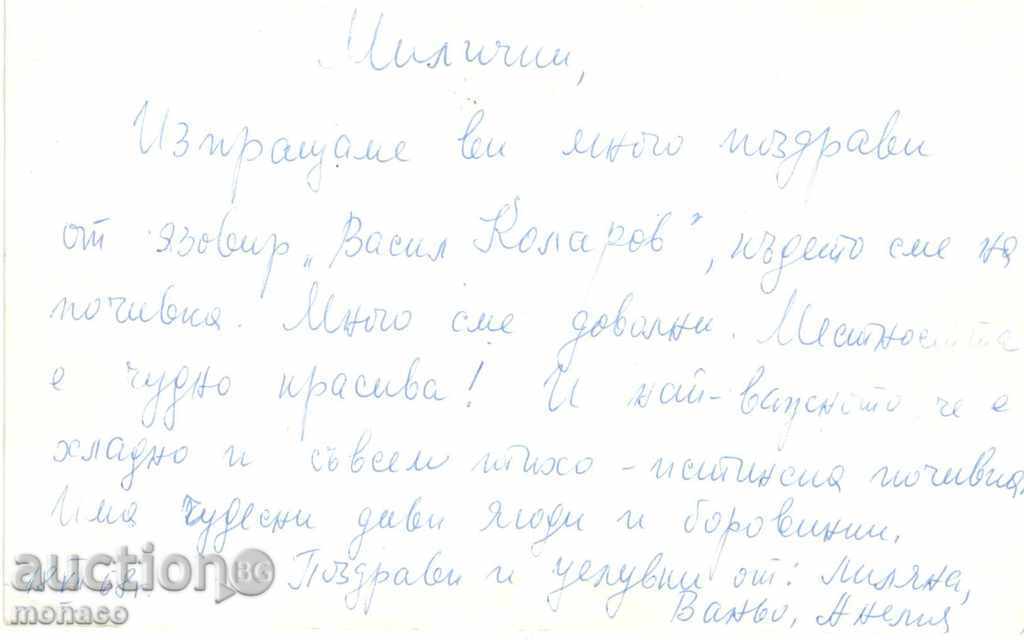 Милички,
Изпращаме ви много поздрави
от язовир „Васил Коларов", където сме на
почивка. Много сме доволни. Местността
е чудно красива! И най-важното че е
хладно и съвсем тихо – истинска почивка.
Има чудесни диви ягоди и боровинки.
Поздрави и целувки от: Лиляна,
Ваньо, Анелия
auction BG
monaco